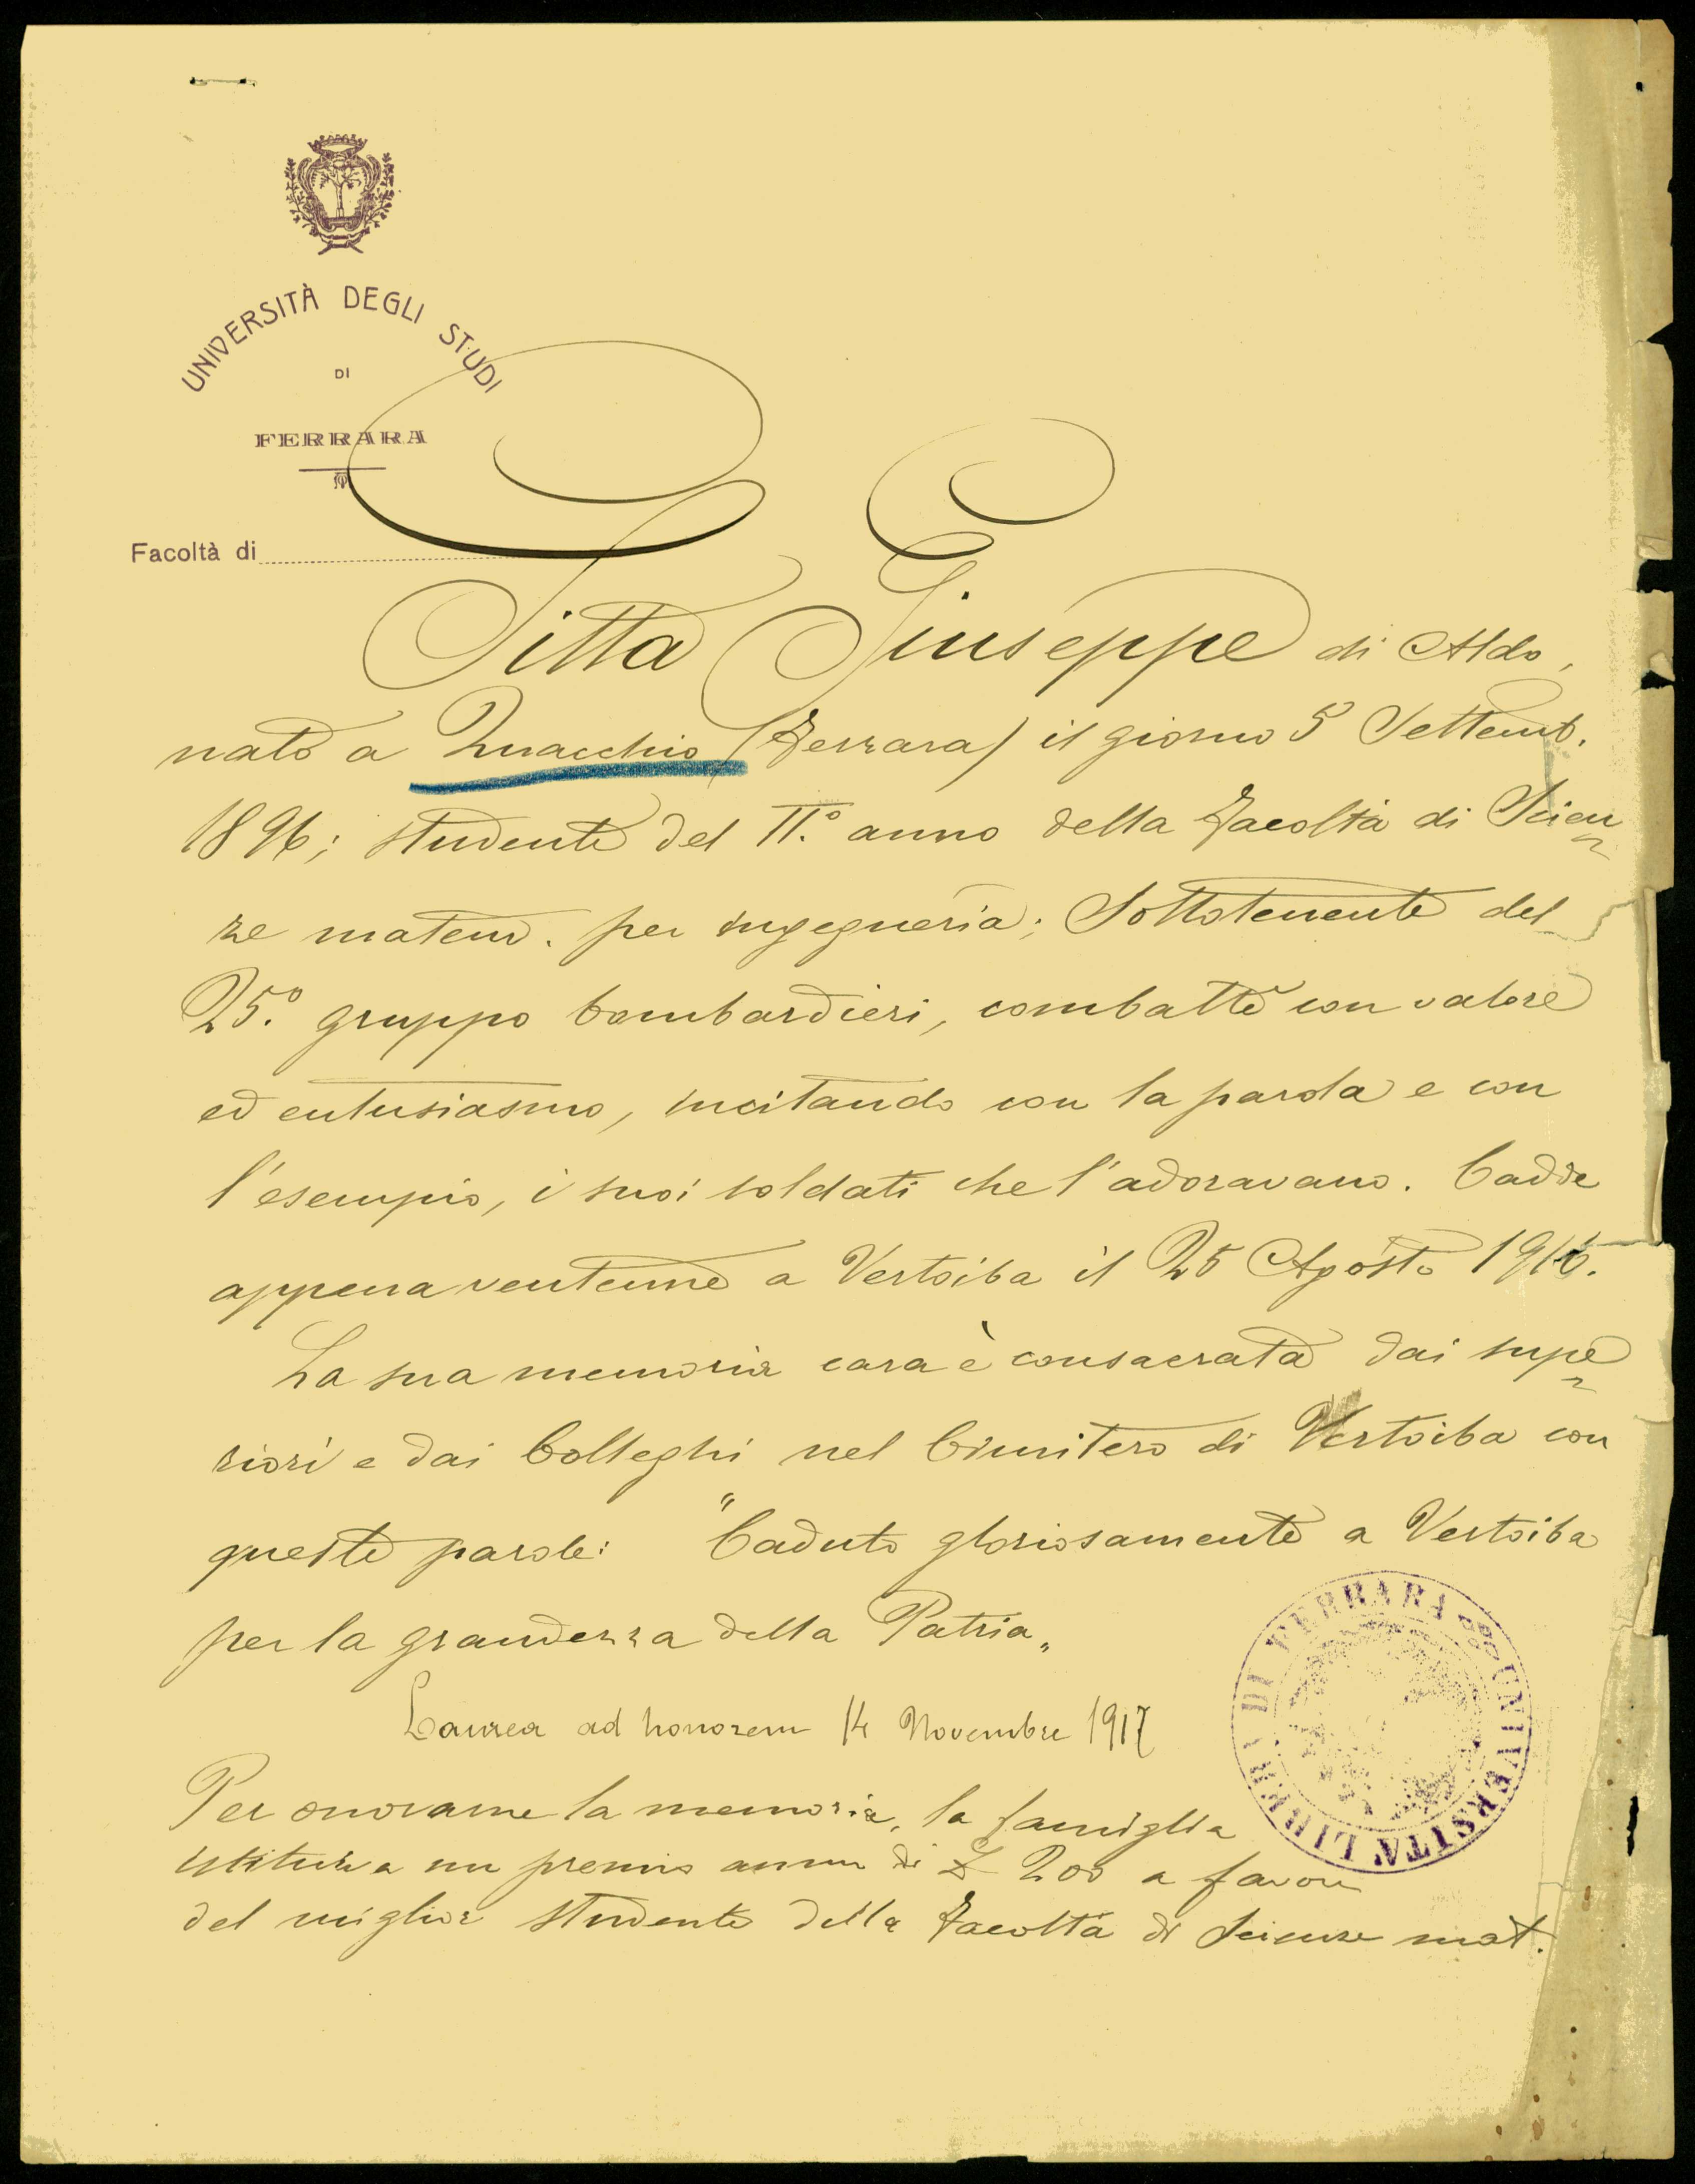 UNIVERSITÀ DEGLI STUDI
DI
FERRARA
Facoltà di
Sitta Giuseppe di Aldo,
nato a Quacchio (Ferrara) il giorno 5 Settemb.
1896; studente del II.° anno della Facoltà di Scien
ze matem. per ingegneria; Sottotenente del
25.° gruppo bombardieri, combattè con valore
ed entusiasmo, incitando con la parola e con
l'esempio, i suoi soldati che l'adoravano. Cadde
appena ventenne a Vertoiba il 25 Agosto 1916.
La sua memoria cara è consacrata dai supe
riori e dai Colleghi nel Cimitero di Vertoiba con
queste parole: "Caduto gloriosamente a Vertoiba
per la grandezza della Patria„
Laurea ad honorem 14 Novembre 1917
Per onorarne la memoria, la famiglia
istituiva un premio annuo di £ 200 a favore
del miglior studente della Facoltà di Scienze mat.
UNIVERSITÀ LIBERA DI FERRARA